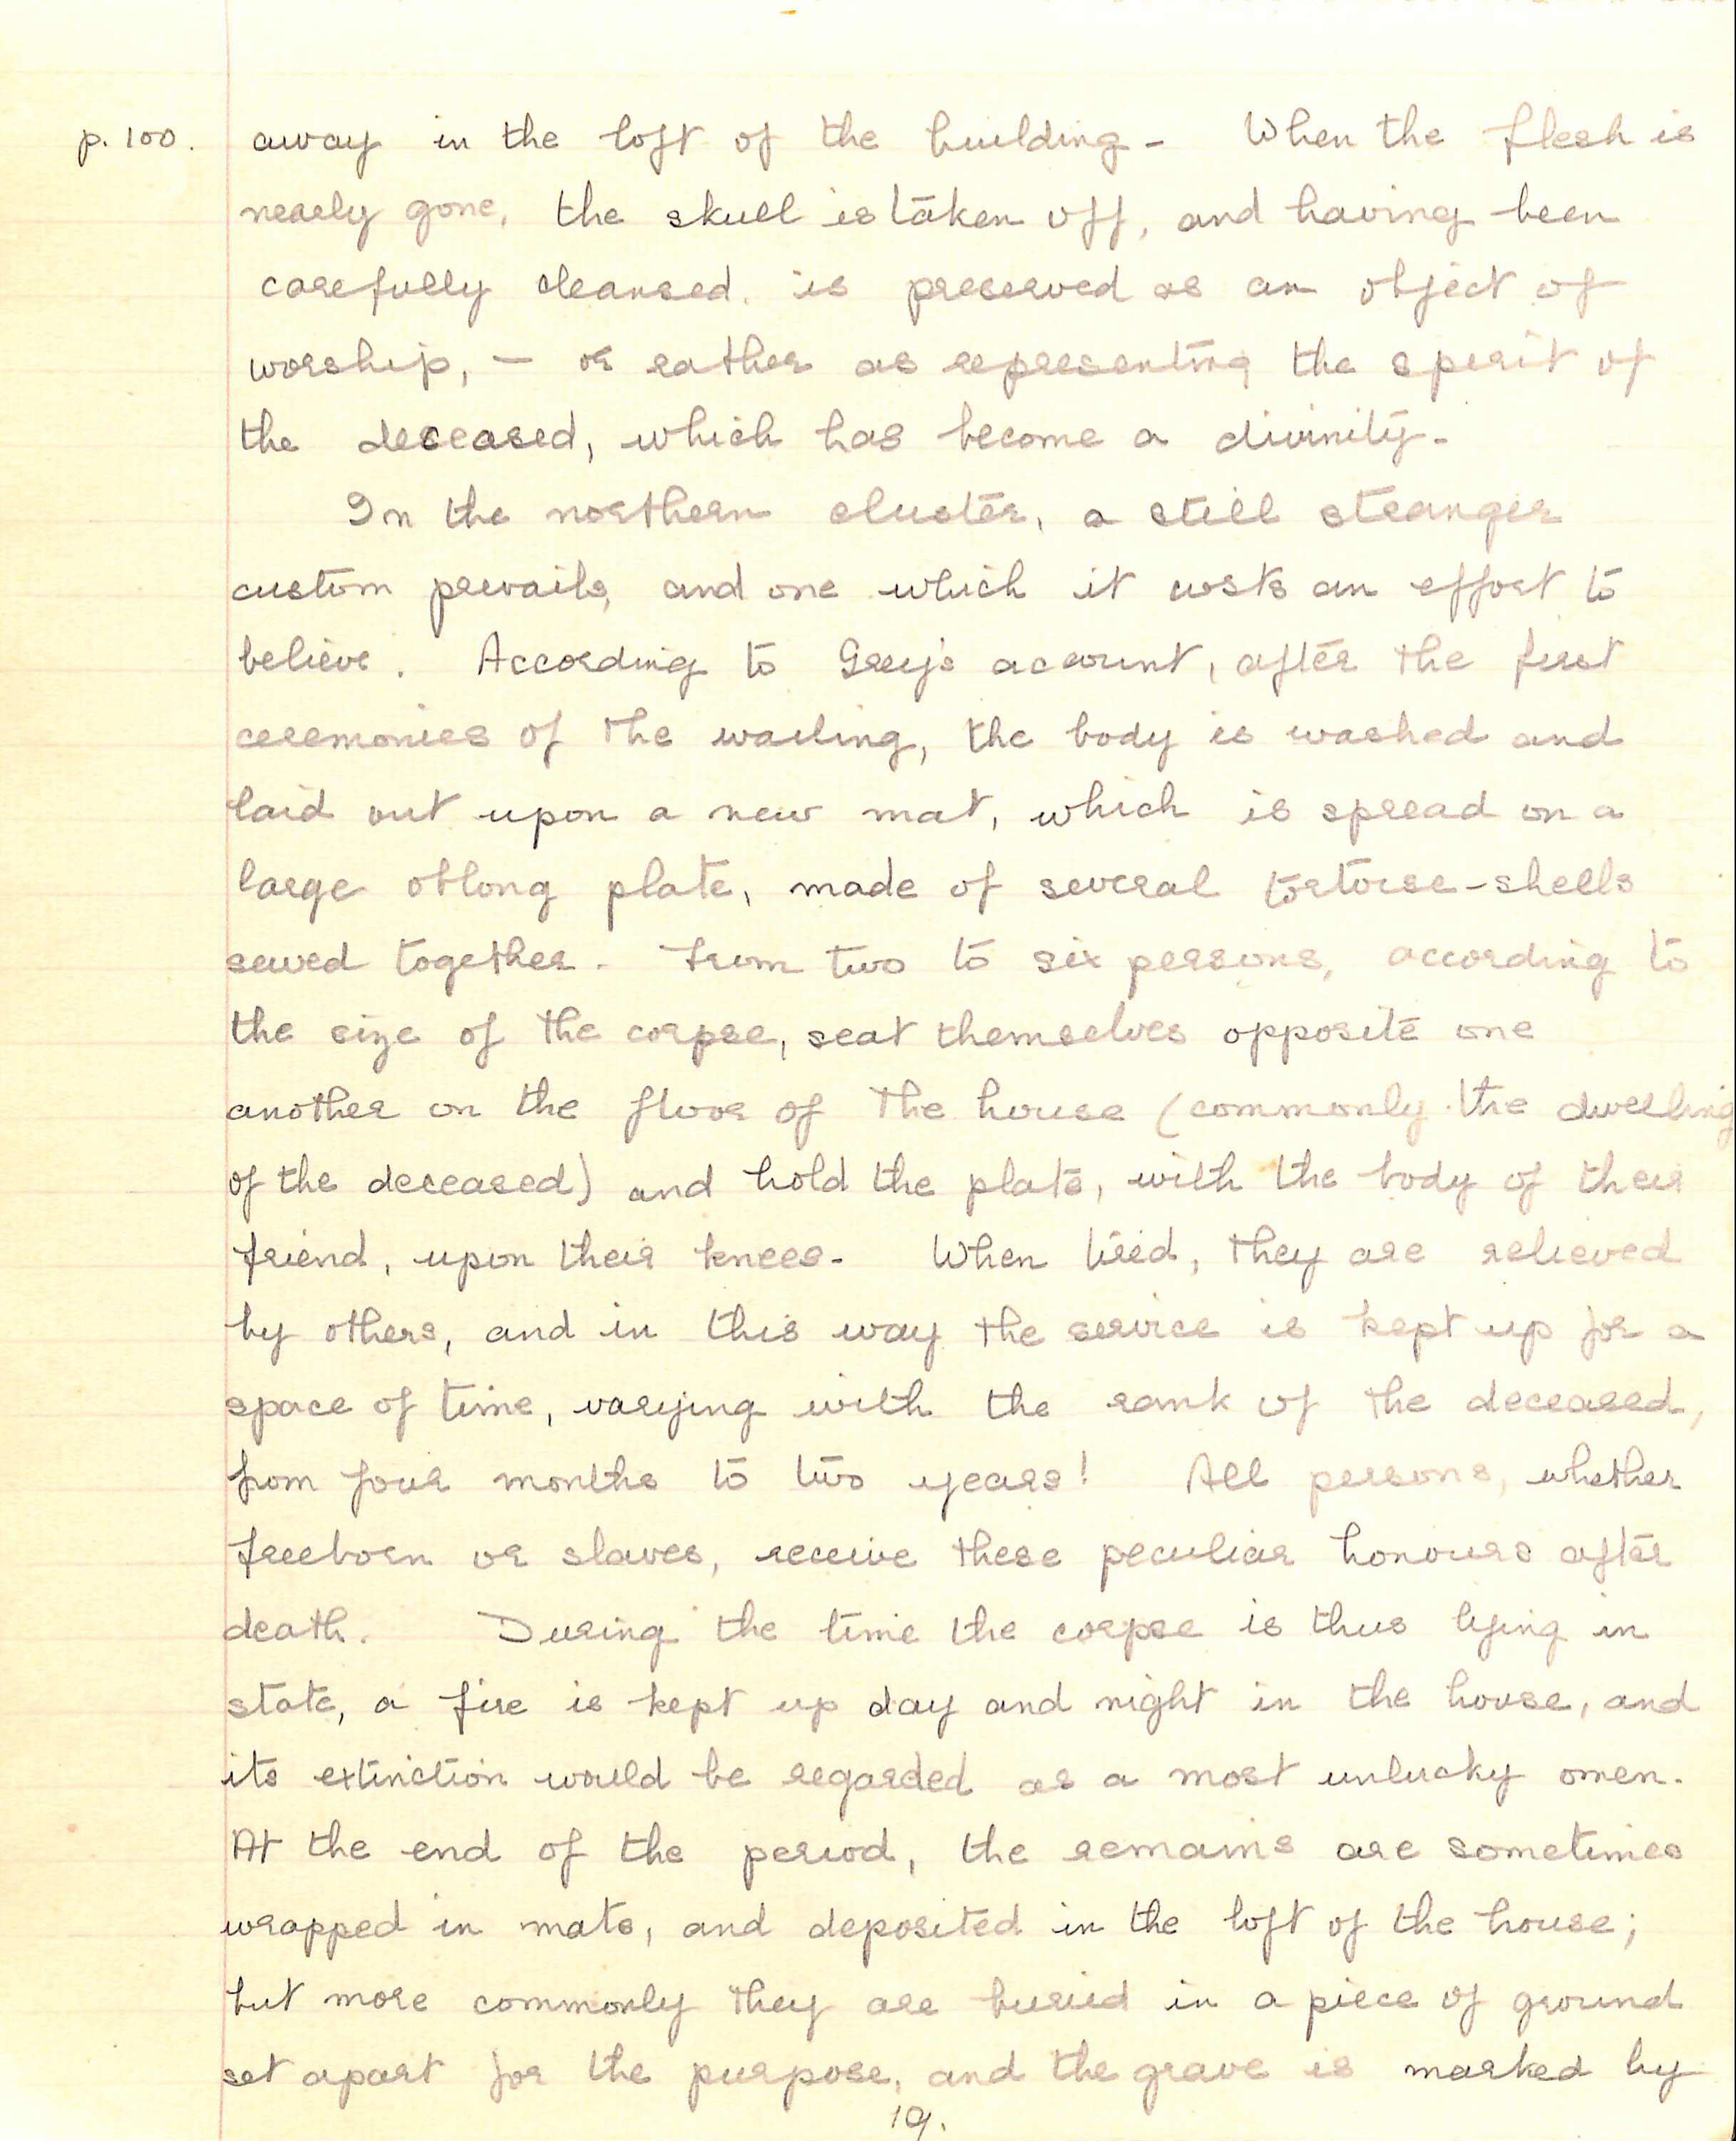 p. 100. away in the loft of the building - When the flesh is
nearly gone, the skull is taken off, and having been
carefully cleansed, is preserved as an object of
worship, - or rather as representing the spirit of
the deceased, which has become a divinity -
In the northern cluster, a still stranger
custom prevails, and one which it costs an effort to
believe. According to Grey's account, after the first
ceremonies of the wailing, the body is washed and
laid out upon a new mat, which is spread on a
large oblong plate, made of several tortoise-shells
sewed together - From two to six persons, according to
the size of the corpse, seat themselves opposite one
another on the floor of the house (commonly the dwelling
of the deceased) and hold the plate, with the body of their
friend, upon their knees - When tired, they are relieved
by others, and in this way the service is kept up for a
space of time, varying with the rank of the deceased,
from four months to two years! All persons, whether
freeborn or slaves, receive these peculiar honours after
death. During the time the corpse is thus lying in
state, a fire is kept up day and night in the house, and
its extinction would be regarded as a most unlucky omen.
At the end of the period, the remains are sometimes
wrapped in mats, and deposited in the loft of the house;
but more commonly they are buried in a piece of ground
set apart for the purpose, and the grave is marked by
19.